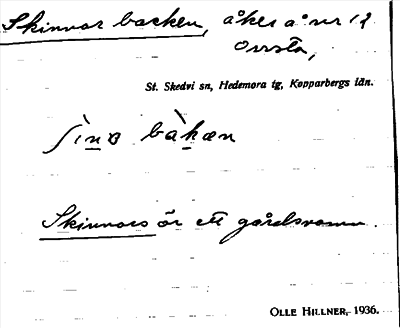 Skinnar backen, åker å nr 12
Orrsta,
St. Skedvi sn, Hedemora tg, Kopparbergs län.
bàkæn
Skinnars är ett gårdsnamn.
OLLE HILLNER, 1936.